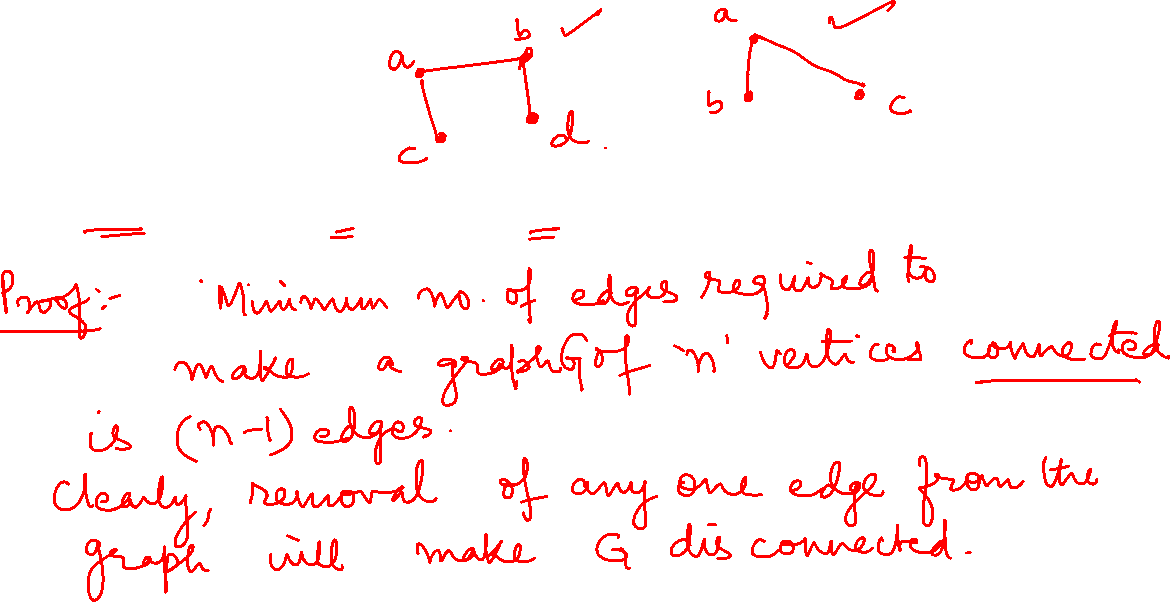 a b ✓ a ✓
c d. b c
Proof:- 'Minimum no. of edges required to
make a graph G of 'n' vertices connected
is (n-1) edges.
Clearly, removal of any one edge from the
graph will make G disconnected.